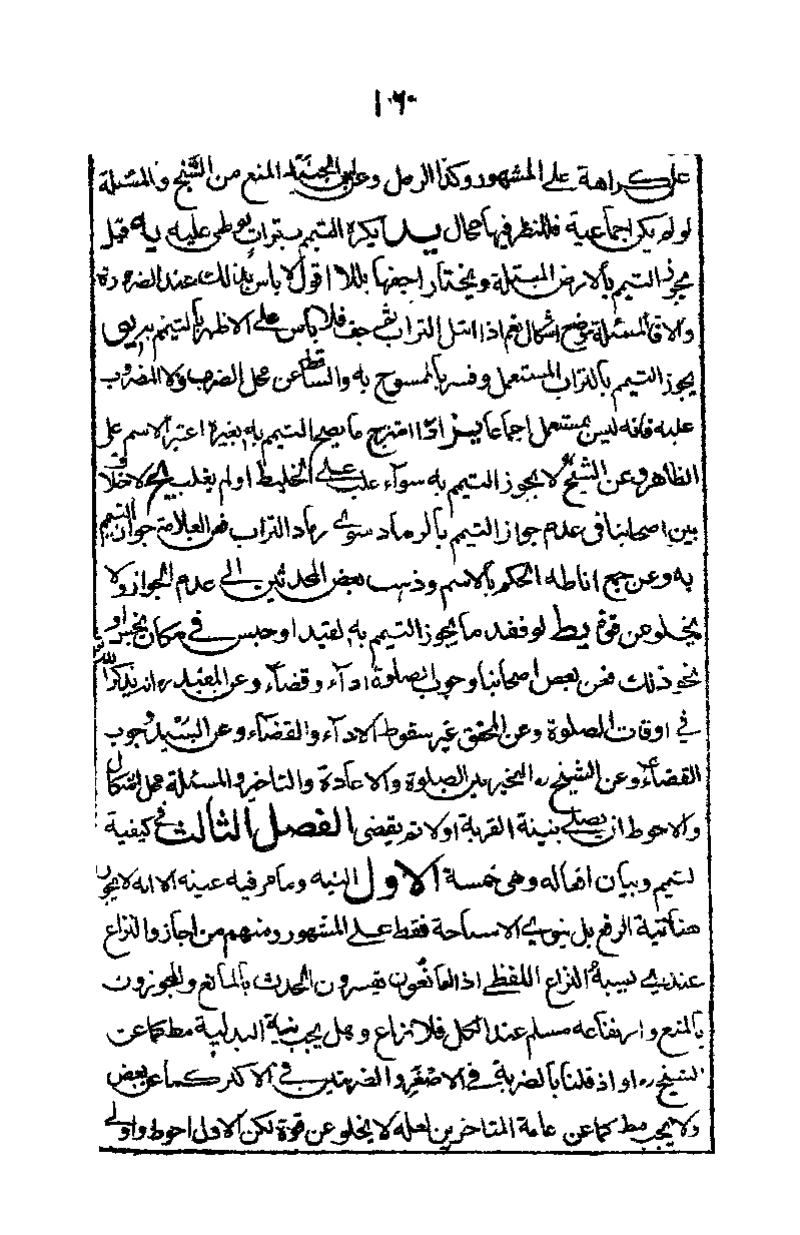 ١٠٦٠
على كراهة على المشهور وكذا الرمل وعن ابن الجنيد المنع من السبخ والمسئلة
لو لم يكن اجماعية فللنظر فيها مجال يد يكره التيمم بتراب يوطى عليه يه قيل
يجوز التيمم بالارض المبتلة ويختار اجفها بللا اقول لا باس بذلك عند الضرورة
والا فالمسئلة موضع اشكال نعم اذا ابتل التراب ثم جف فلا باس على الاظهر بالتيمم به يو
يجوز التيمم بالتراب المستعمل وفسر بالممسوح به والساقط عن محل الضرب ولا المضروب
عليه فانه ليس بمستعمل اجماعا يز اذا امتزج ما يصح التيمم به بغيره اعتبر الاسم على
الظاهر وعن الشيخ لا يجوز التيمم به سواء غلب على الخليط او لم يغلب يح لا خلاف
بين اصحابنا في عدم جواز التيمم بالرماد سوى رماد التراب فعن العلامة جواز التيمم
به وعن جمع اناطه الحكم بالاسم وذهب بعض المحدثين الى عدم الجواز ولا
يخلو عن قوة يط لو فقد ما يجوز التيمم به لقيد او حبس في مكان نجس او
نحو ذلك فعن بعض اصحابنا وجوب الصلوة اداء وقضاء وعن المفيد ره انه يذكر الله
في اوقات الصلوة وعن المحقق غير سقوط الاداء والقضاء وعن السيد وجوب
القضاء وعن الشيخ ره التخيير بين الصلوة والاعادة والتاخير والمسئلة محل اشكال
والاحوط ان يصلي بنية القربة اولا ثم يقضى الفصل الثالث في كيفية
لتيمم وبيان افعاله وهي خمسة الاول النيه وما مر فيه عينه الا انه لا يجوز
هنا نية الرفع بل ينوي الاستباحة فقط على المشهور ومنهم من اجاز والنزاع
عندي يشبه النزاع اللفظي اذ المانعون يفسرون الحدث بالمانع والمجوزون
بالمنع وارتفاعه مسلم عند الكل فلا نزاع وهل يجب نية البدلية مط كما عن
الشيخ ره او اذ قلنا بالضربة في الاصغر والضربتين في الاكبر كما عن بعض
ولا يجب مط كما عن عامة المتاخرين لعله لا يخلو عن قوة لكن الاول احوط واولى